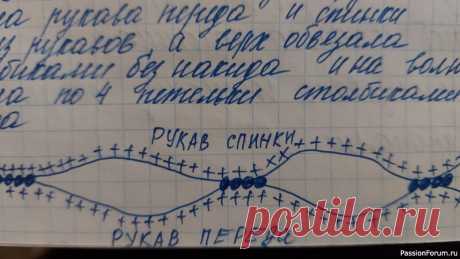 на рукава переда и спинки
из рукавов, а верх обвязала
биками без накида и на волн
на по 4 петельки столбиками
на
РУКАВ СПИНКИ
РУКАВ ПЕРЕДА
postila.ru
PassionForum.ru